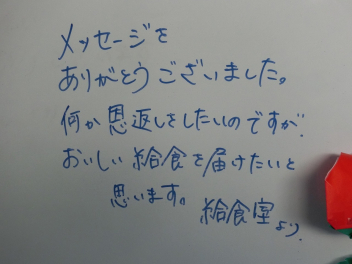 メッセージを
ありがとうございました。
何か恩返しをしたいのですが、
おいしい給食を届けたいと
思います。
給食室より。